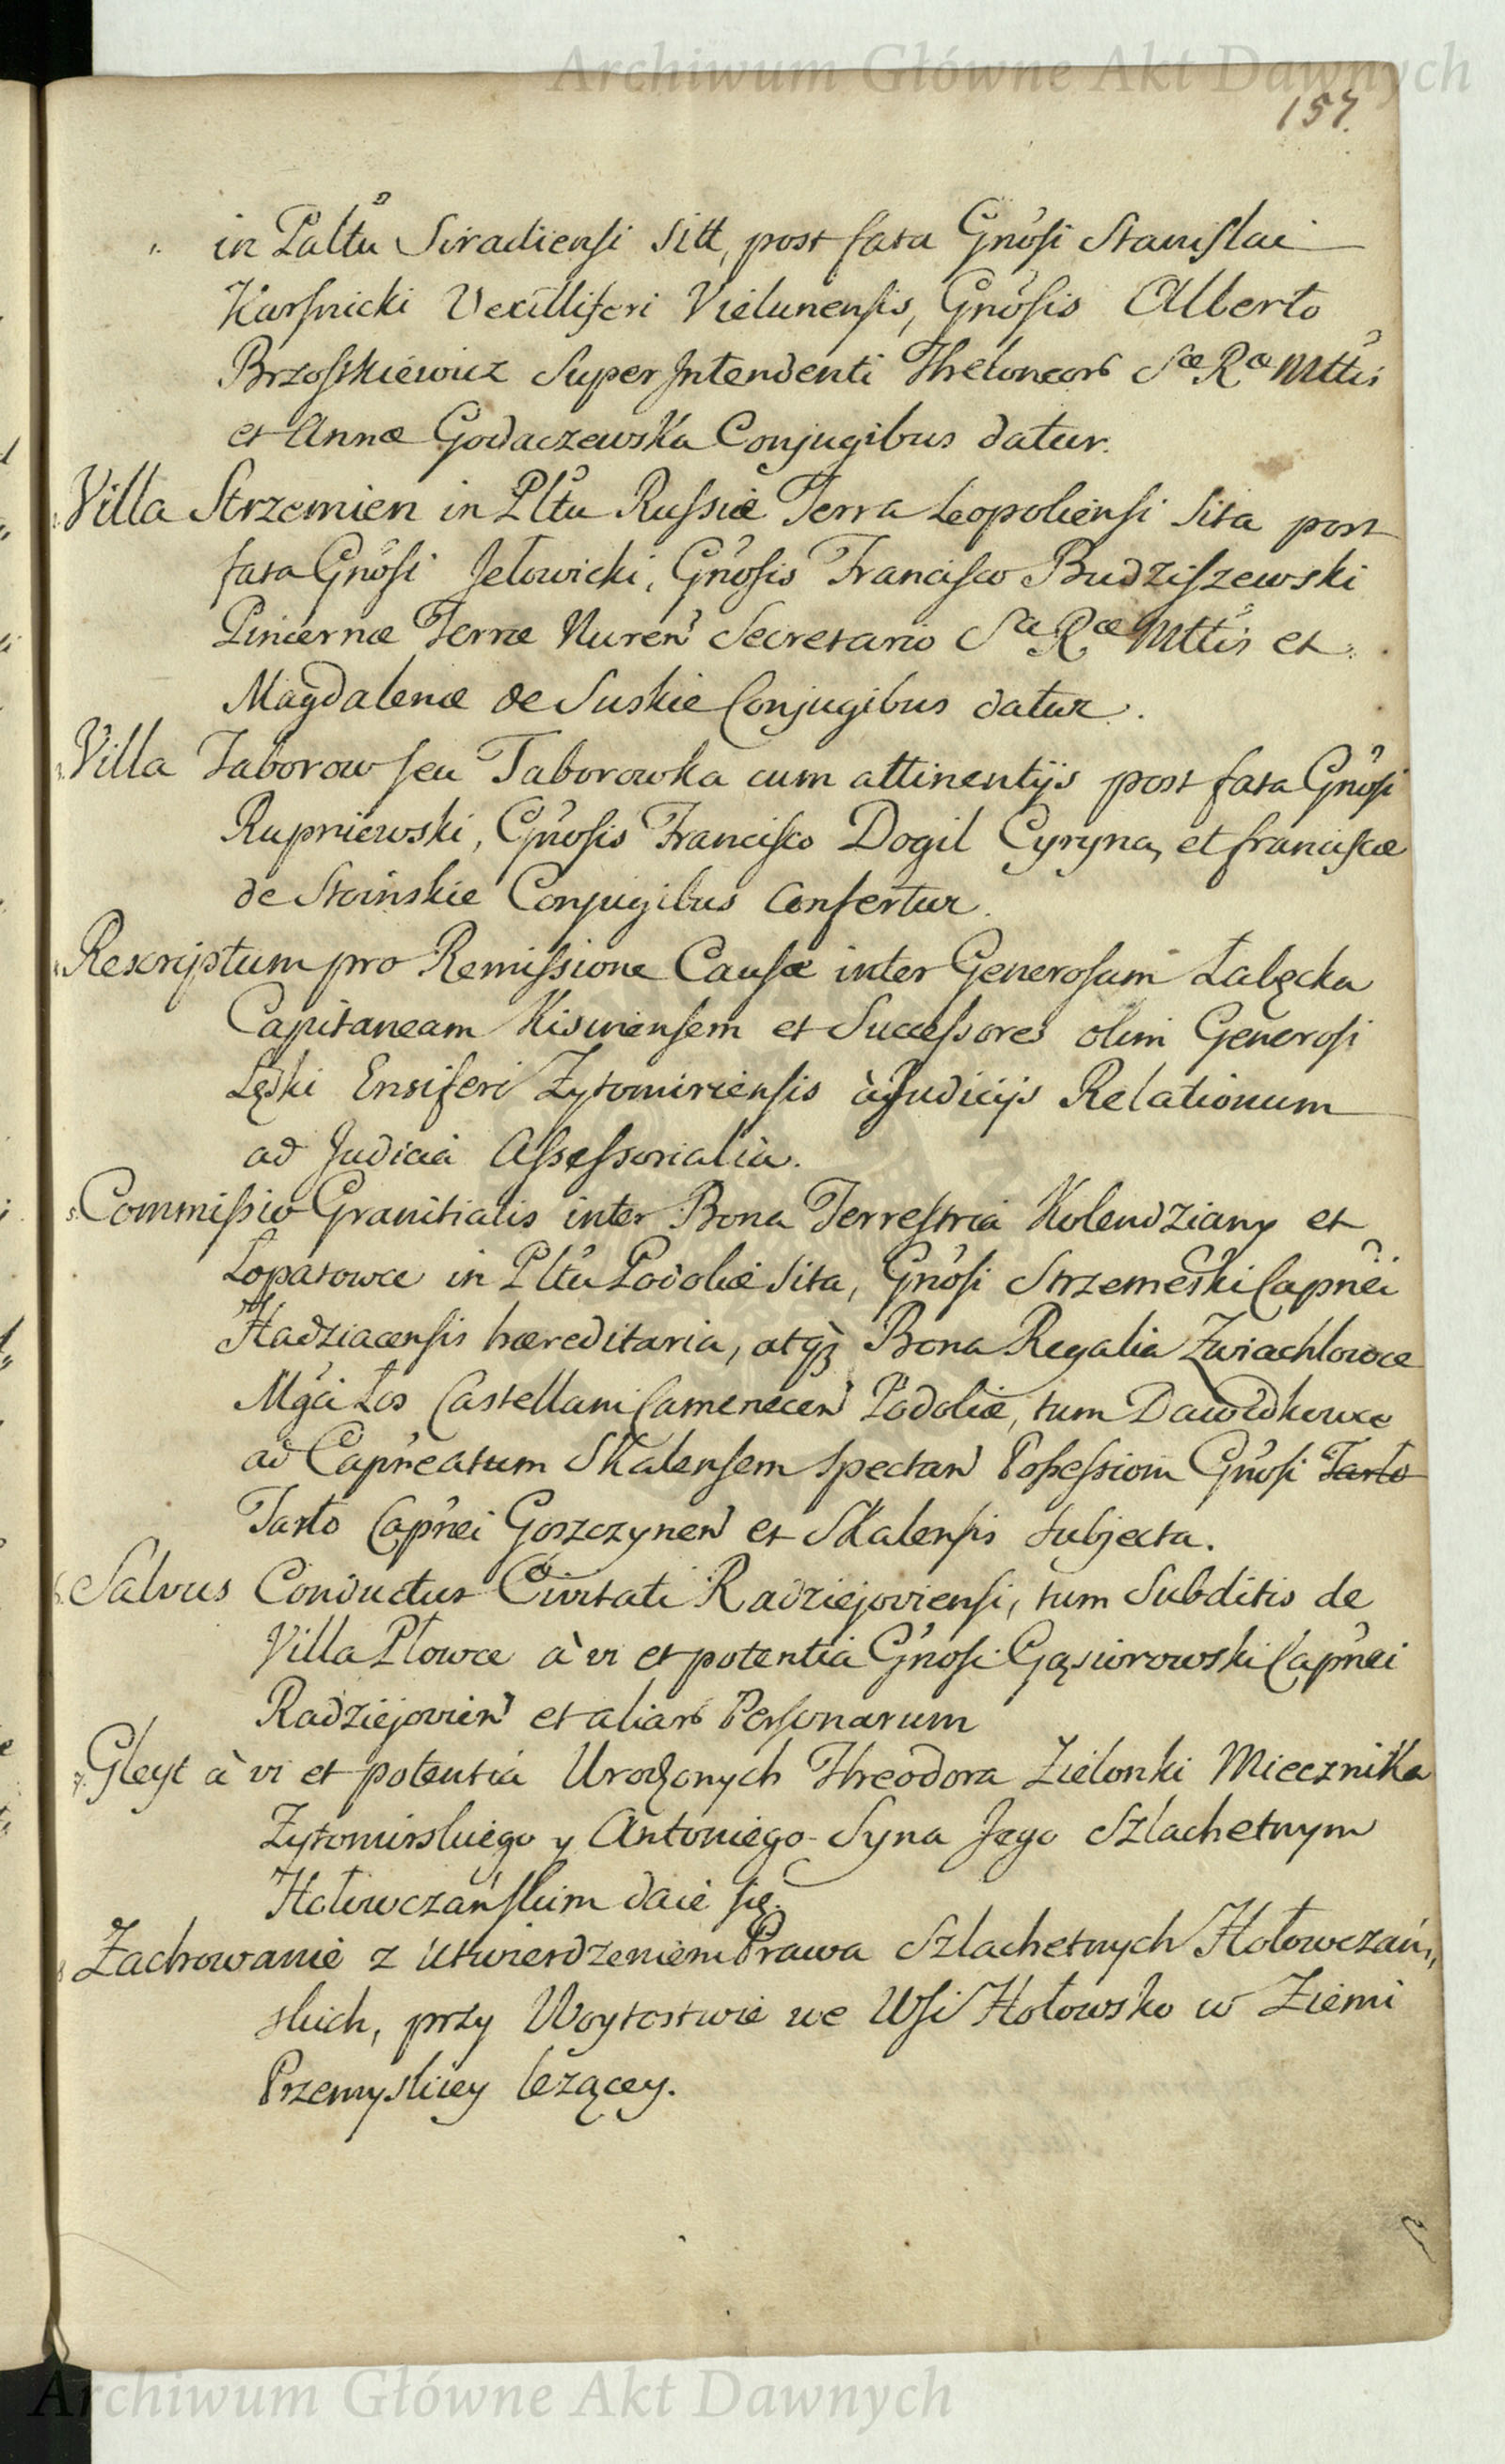 Archiwum Główne Akt Dawnych
157.
in Paltu Siradiensi Sitt, post fata Gnosi Stanislai
Karsnicki Vexilliferi Vielunensis, Gnosis Alberto
Brzoskiewicz Super Intendenti Theloneor Sae Rae Mttis
et Annæ Godaczewska Conjugibus datur.
Villa Strzemien in Pltu Russiæ Terra Leopoliensi Sita post
fata Gnosi Jełowicki, Gnosis Francisco Budziszewski
Pincernæ Terræ Nuren Secretario Sae Rae Mttis et
Magdalenæ de Suskie Conjugibus datur.
Villa Taborow seu Taborowka cum attinentijs post fata Gnosi
Rupniewski, Gnosis Francisco Dogil Cyryna, et franciscæ
de Stoinskie Conjugibus Confertur.
Rescriptum pro Remissione Causæ inter Generosam Łabęcka
Capitaneam Kisinensem et Successores olim Generosi
Lęski Ensiferi Zytomiriensis à Judicijs Relationum
ad Judicia Assessorialia.
5. Commissio Granitialis inter Bona Terrestria Kolendziany et
Łoparowce in Pltu Podoliæ Sita, Gnosi Strzemeski Capnei
Hadziacensis hæreditaria, atq3 Bona Regalia Zwiachlowce
Mgci Łos Castellani Camenecen Podoliæ, tum Dawidkowce
ad Capneatum Skalensem Spectan Possessioni Gnosi Tarło
Tarło Capnei Goszczynen et Skalensis subjecta.
6. Salvus Conductus Civitati Radziejoviensi, tum Subditis de
Villa Płowce à vi et potentia Gnosi Gąsiorowski Capnei
Radziejovien et aliar Personarum
7. Gleyt à vi et potentiá Urodzonych Threodora Zielonki Miecznika
Zytomirskiego y Antoniego Syna Jego Szlachetnym
Hołowczańskim daie się.
8 Zachowanie z utwierdzeniem Prawa Szlachetnych Hołowczań„
skich, przy Woytostwie we Wsi Hołowsko w Ziemi
Przemyskiey leżącey.
Archiwum Główne Akt Dawnych